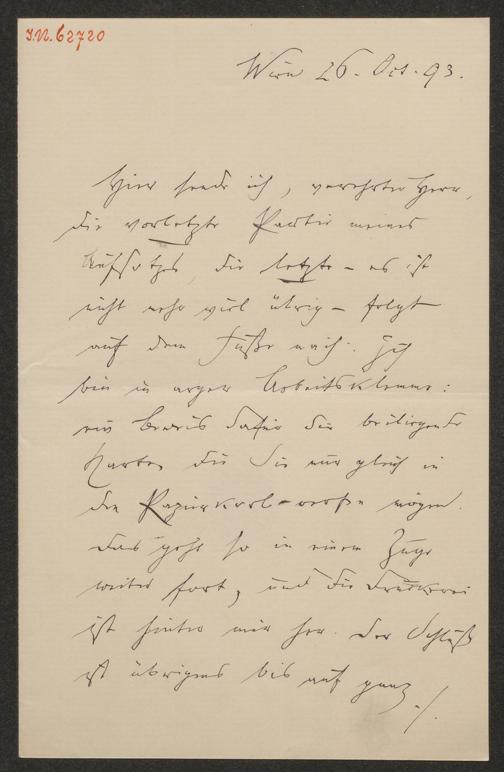 I.N. 62720
Wien 26. Oct. 93.
Hier sende ich, verehrter Herr,
die vorletzte Partie meines
Aufsatzes, die letzte – es ist
nicht mehr viel übrig – folgt
auf dem Fuße nach. Ich
bin in arger Arbeitsklemme:
ein Beweis dafür die beiliegende
Karte, die Sie nur gleich in
den Papierkorb werfen mögen.
Das geht so in einem Zuge
weiter fort, und die Druckerei
ist hinter mir her. Der Schluß
ist übrigens bis auf ganz
./.